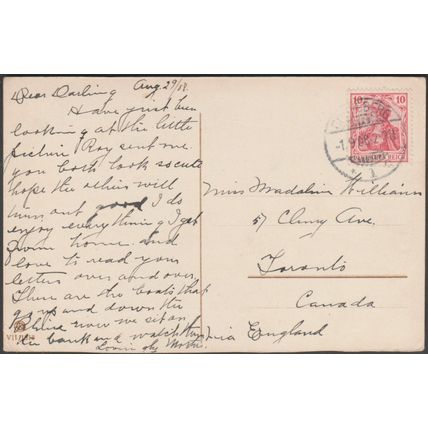 Dear Darling Aug. 29/08.
Have just been
looking at the little
picture Roy sent me.
you both look so cute
hope the others will
turn out good I do
enjoy everything I get
from home. and
love to read your
letters over and over.
These are the boats that
go up and down the
Rhine river we sit on
the bank and watch them
Loving Mother
Miss Madaline Williams
57 Cluny Ave.
Toronto
Canada
Via England
10 10
DEUTSCHES REICH